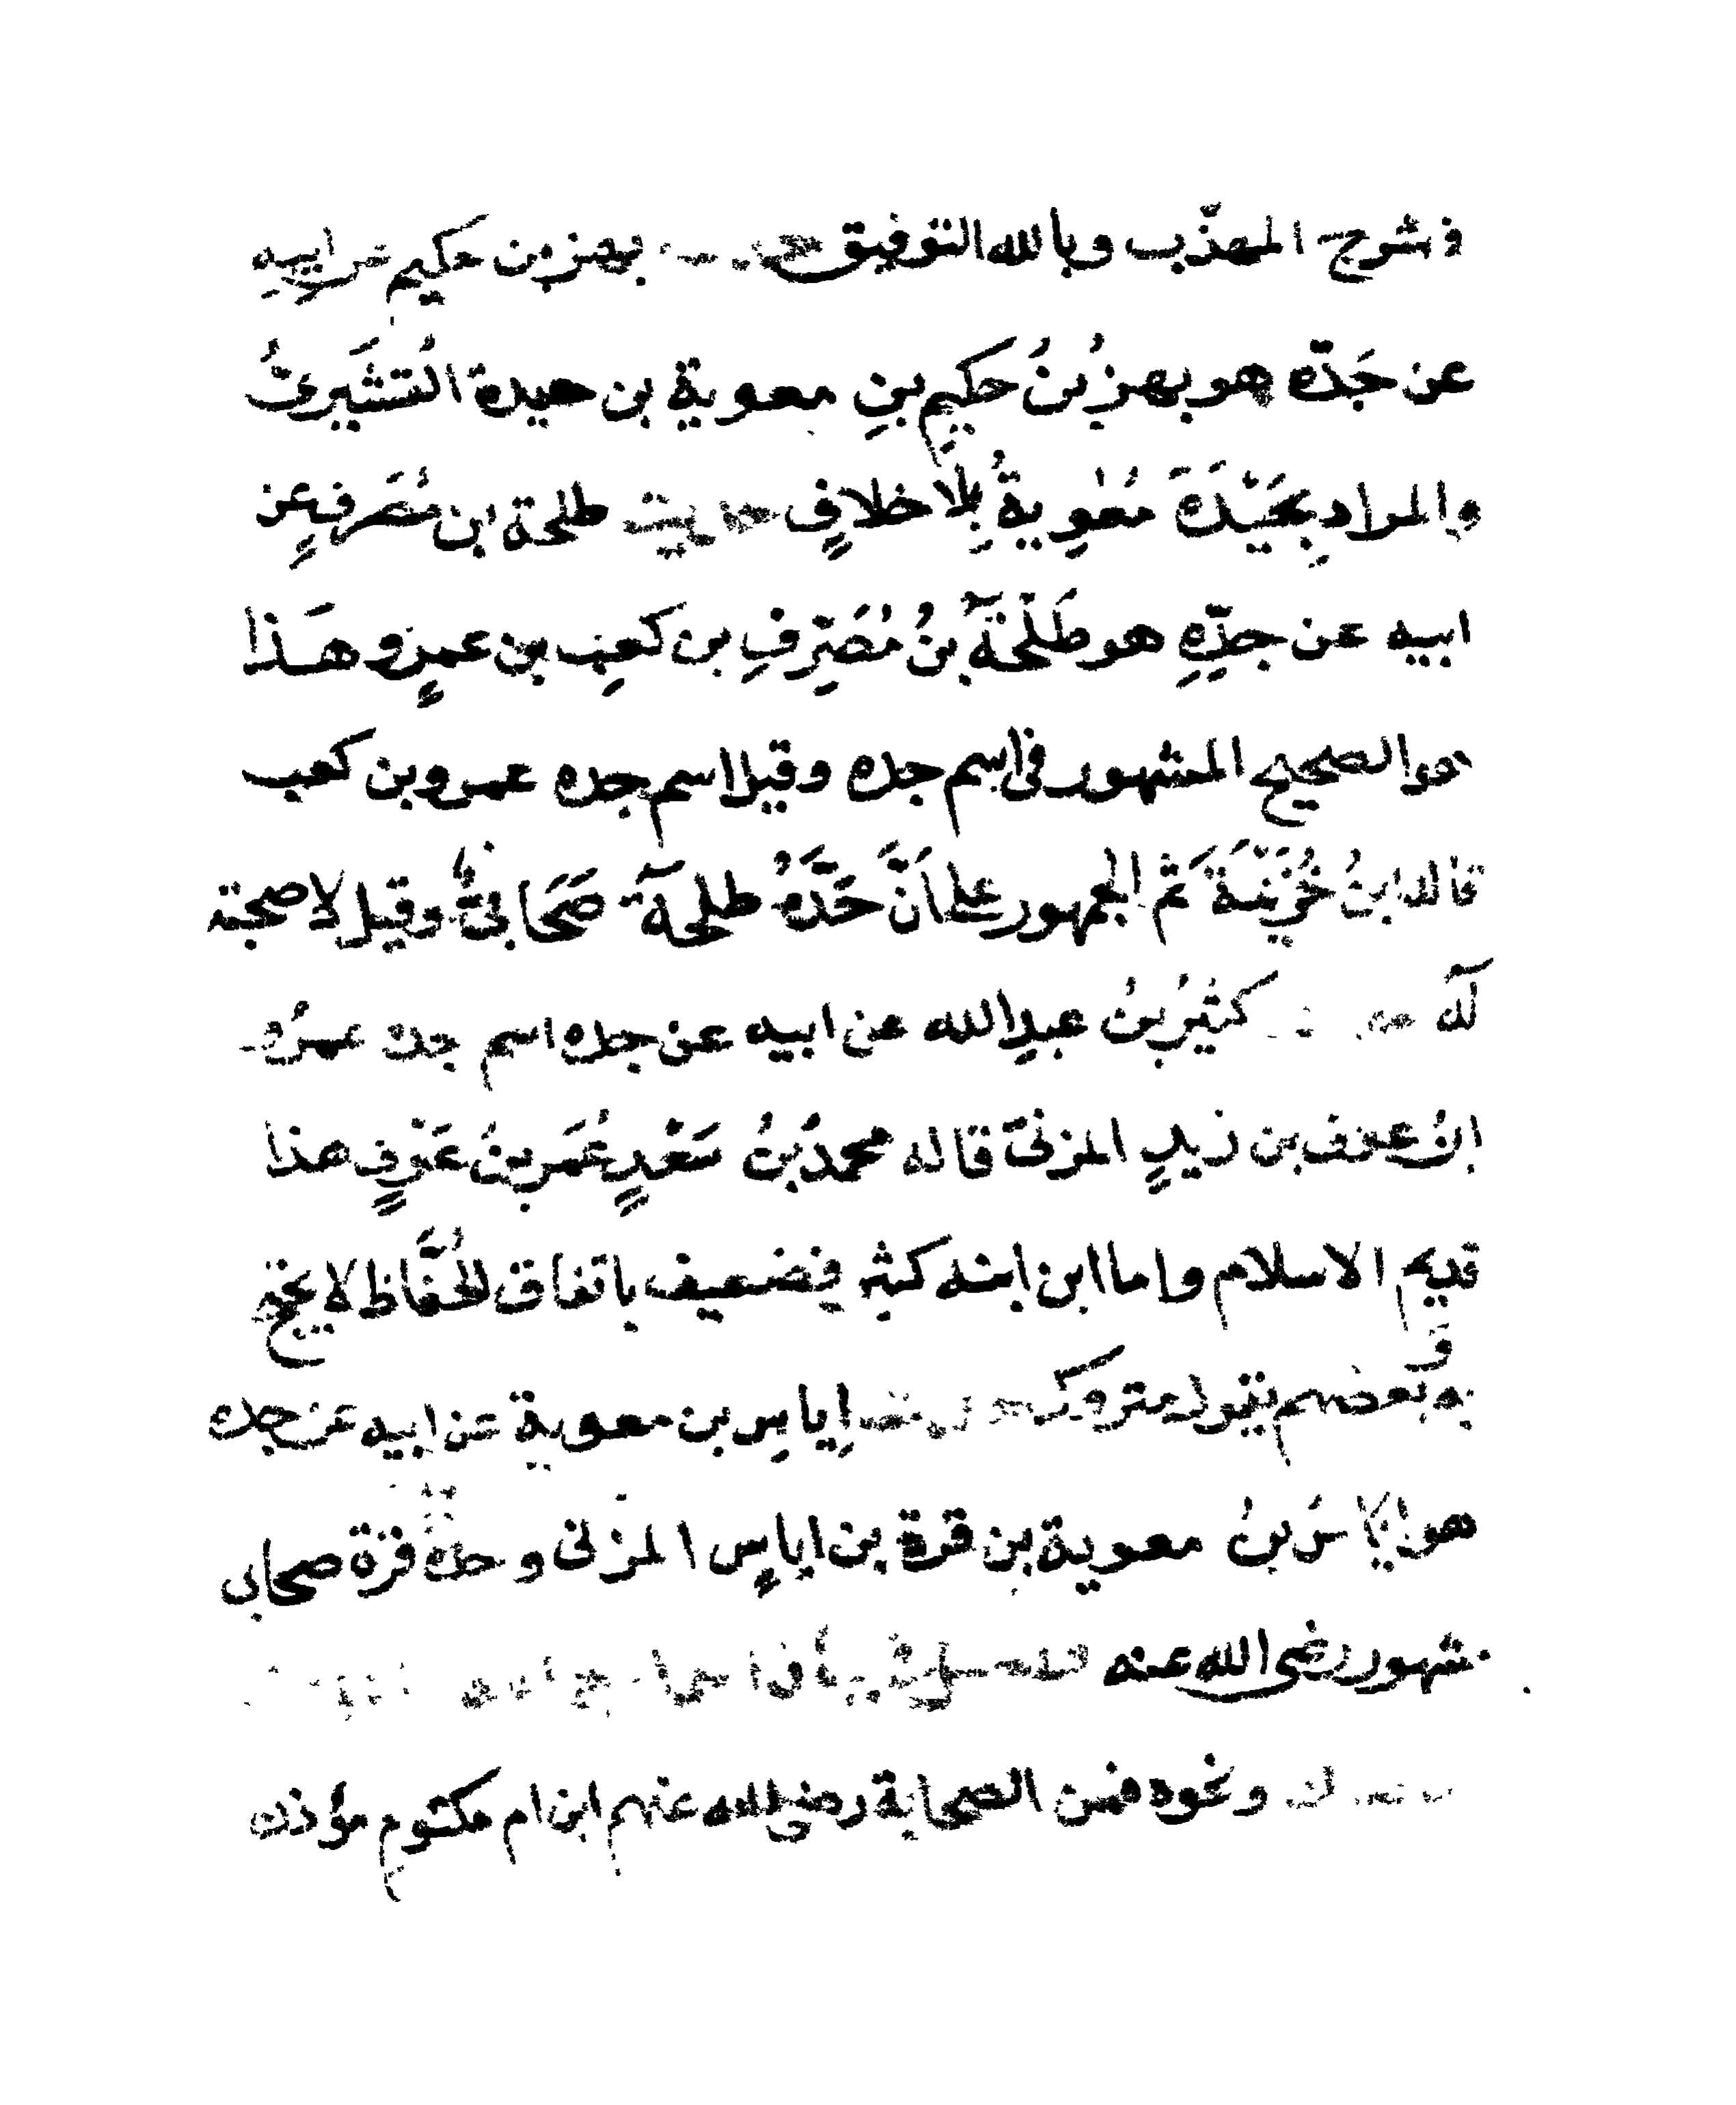 في شرح المهذّب وبالله التوفيق بهز بن حكيم عن ابيهِ
عن جَدّه هو بهزُ بنُ حكيمِ بنِ معوية بن حيدة القُشَيريُّ
والمرادِ بحَيْدَةَ مُعٰوِيةُ بِلَا خلافٍ حديث طلحة ابن مُصَرفٍ عن
ابيه عن جدِّهِ هو طَلْحَةُ بنُ مُصَرِّفِ بن كعبِ بن عمرٍو هَذا
هو الصحيح المشهور في اسم جده وقيل اسم جده عمرو بن كعب
قاله ابنُ خُزَيْمَةَ ثم الجمهور على اَنَّ جَدَّهُ طلحةَ صَحَابيٌّ وقيل لا صحبة
لَه كثيرُ بنُ عبدِ الله عن ابيه عن جده اسم جده عمرُو
ابنُ عوف بن زيدٍ المزنيّ قاله محمدُ بنُ سَعْدٍ عُمَر بنُ عَوْفٍ هذا
قديم الاسلام واما ابن ابنه كثير فضعيف باتفاق الحُفَّاظ لا يحتج
به وبعضهم يقول متروك اِياسِ بن معوية عن ابيه عن جده
هو اياسُ بنُ معوية بن قرة بن اياسٍ المزنى وجدّه قرّة صحابى
مشهور رضى الله عنه
ونحوه فمن الصحابة رضى الله عنهم ابن ام مكتوم مؤذن